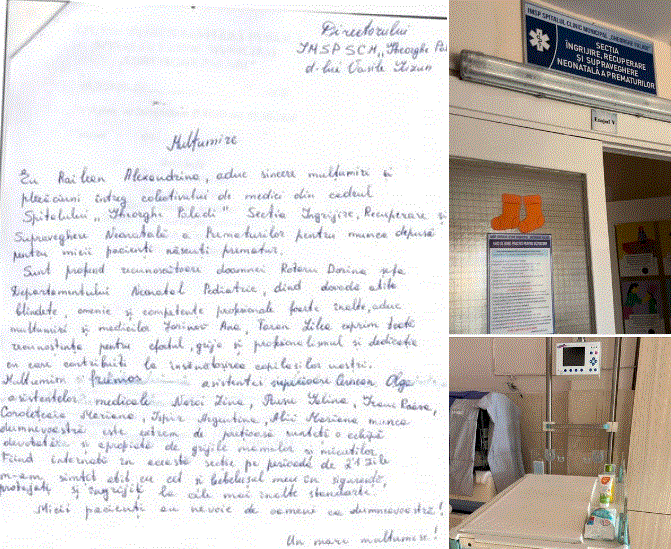 Directorului
IMSP SCM „Gheorghe Pal
d-lui Vasile Jizun
Mulțumire
Eu Railean Alexandrina, aduc sincere mulțumiri și
plecăciuni întreg colectivului de medici din cadrul
Spitalului „Gheorghe Paladi" Secția Îngrijire, Recuperare și
Supraveghere Neonatală a Prematurilor pentru munca depusă
pentru micii pacienți născuți prematur.
Sunt profund recunoscătoare doamnei Rotaru Dorina șefa
Departamentului Neonatal Pediatric, dînd dovadă atîta
blîndețe, omenie și competențe profesionale foarte înalte, aduc
mulțumiri și medicilor Ana, Lilia exprim toată
recunoștința pentru efortul, grija și profesionalismul și dedicația
cu care contribuiți la însănătoșirea copilașilor noștri.
Mulțumim frumos asistentei superioare Olga
asistentelor medicale Zina, Rusu Felina,
Mariana, Argentina, Mariana munca
dumneavoastră este extrem de prețioasă sunteți o echipă
devotată și apropiată de grijile mamelor și micuților.
Fiind internată în această secție pe perioada de 21 zile
m-am simțit atît eu cît și bebelușul meu în siguranță,
protejați și îngrijiți la cele mai înalte standarte.
Micii pacienți au nevoie de oameni ca dumneavoastră!
Un mare mulțumesc!
IMSP SPITALUL CLINIC MUNICIPAL „GHEORGHE PALADI"
SECȚIA
ÎNGRIJIRE, RECUPERARE
ȘI SUPRAVEGHERE
NEONATALĂ A PREMATURILOR
Etajul V